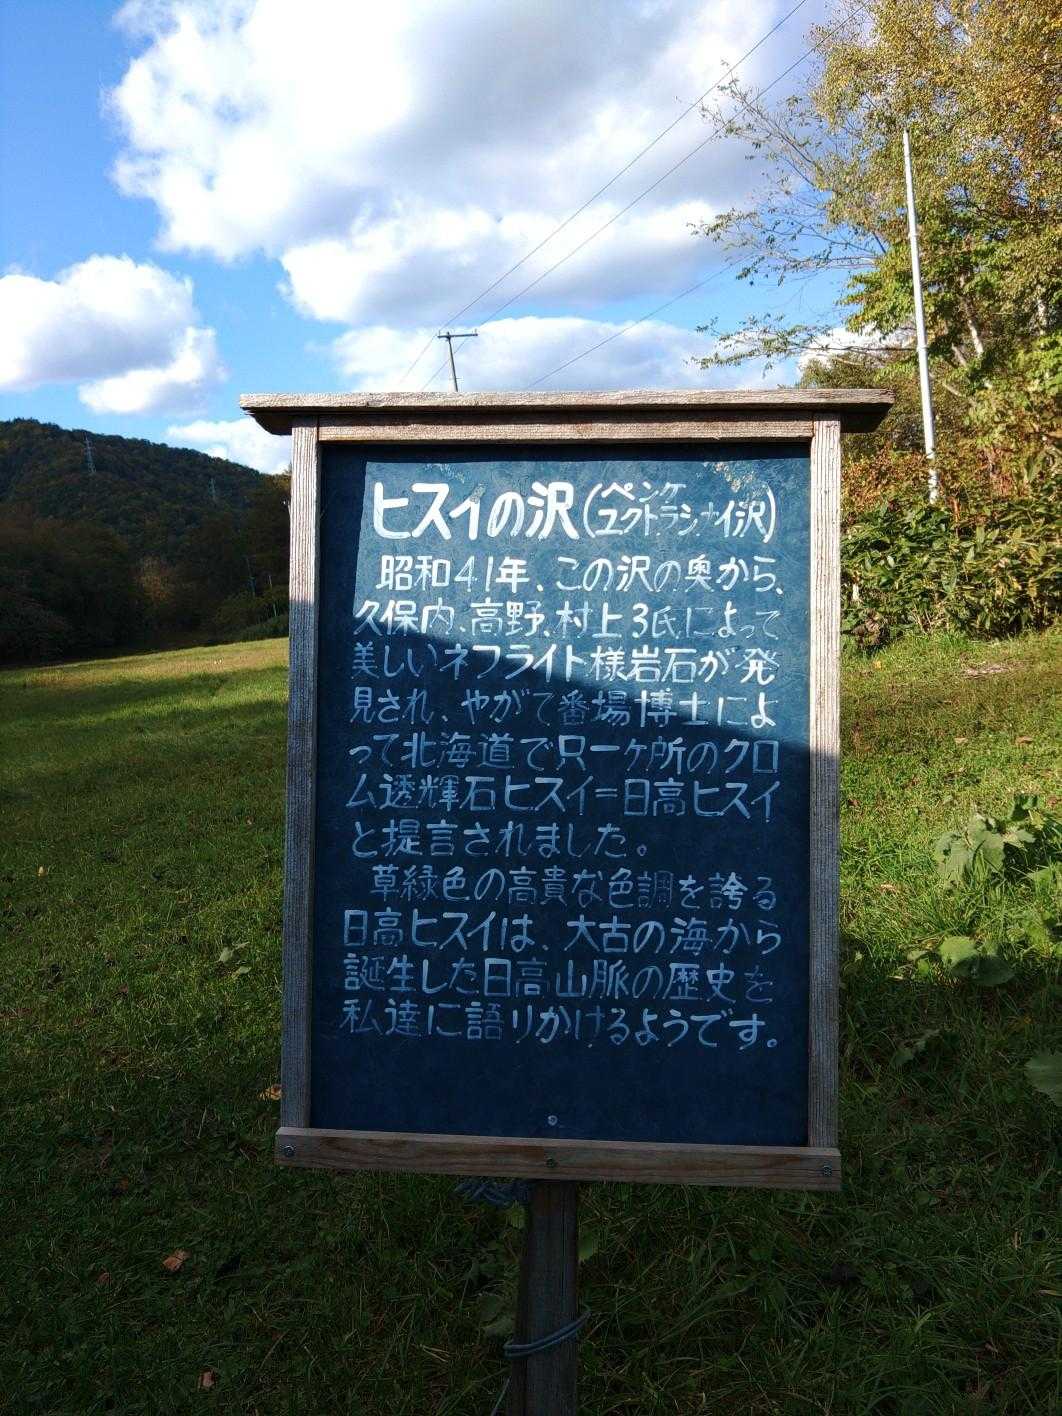 ヒスイの沢(ペンケユクトラシナイ沢)
昭和41年、この沢の奥から、
久保内、高野、村上3氏によって
美しいネフライト様岩石が発
見され、やがて番場博士によ
って北海道で只一ヶ所のクロ
ム透輝石ヒスイ=日高ヒスイ
と提言されました。
草緑色の高貴な色調を誇る
日高ヒスイは、大古の海から
誕生した日高山脈の歴史を
私達に語りかけるようです。